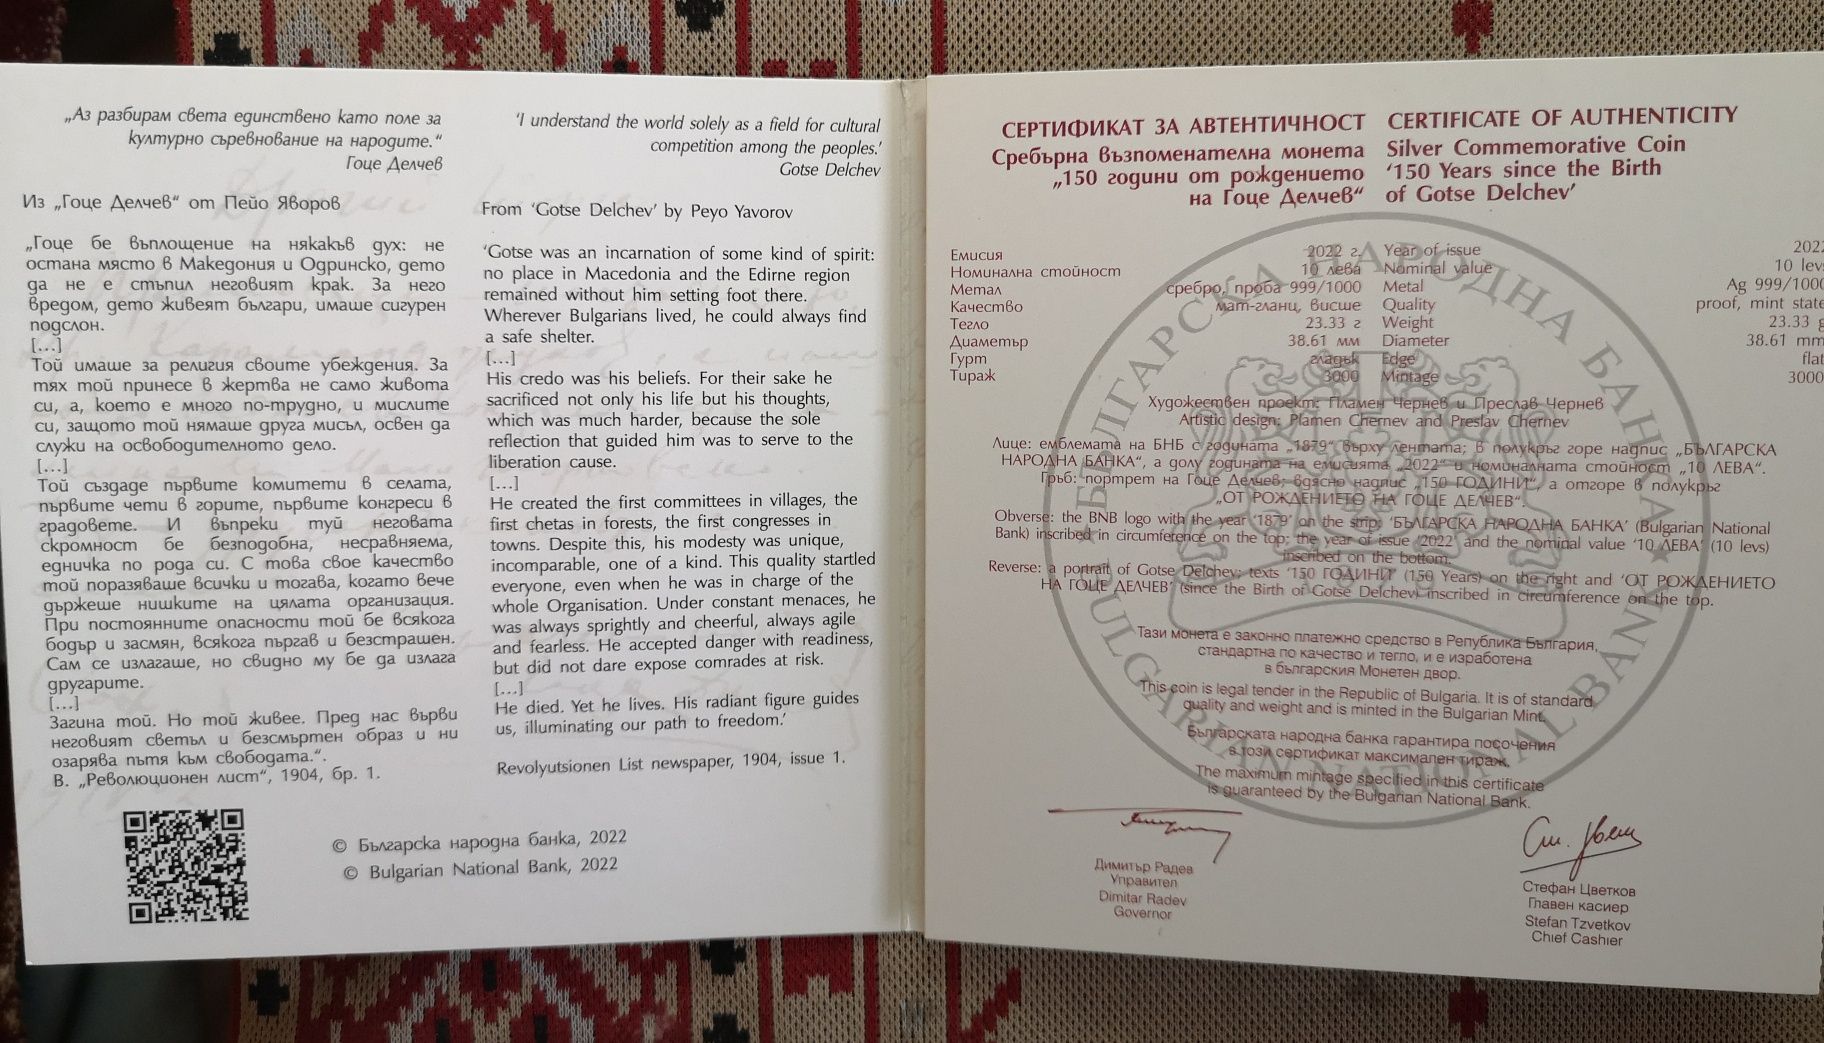 „Аз разбирам света единствено като поле за
културно съревнование на народите.“
Гоце Делчев
Из „Гоце Делчев“ от Пейо Яворов
„Гоце бе въплощение на някакъв дух: не
остана място в Македония и Одринско, дето
да не е стъпил неговият крак. За него
вредом, дето живеят българи, имаше сигурен
подслон.
[...]
Той имаше за религия своите убеждения. За
тях той принесе в жертва не само живота
си, а, което е много по-трудно, и мислите
си, защото той нямаше друга мисъл, освен да
служи на освободителното дело.
[...]
Той създаде първите комитети в селата,
първите чети в горите, първите конгреси в
градовете. И въпреки туй неговата
скромност бе безподобна, несравняема,
едничка по рода си. С това свое качество
той поразяваше всички и тогава, когато вече
държеше нишките на цялата организация.
При постоянните опасности той бе всякога
бодър и засмян, всякога пъргав и безстрашен.
Сам се излагаше, но свидно му бе да излага
другарите.
[...]
Загина той. Но той живее. Пред нас върви
неговият светъл и безсмъртен образ и ни
озарява пътя към свободата.“.
В. „Революционен лист“, 1904, бр. 1.
'I understand the world solely as a field for cultural
competition among the peoples.'
Gotse Delchev
From 'Gotse Delchev' by Peyo Yavorov
'Gotse was an incarnation of some kind of spirit:
no place in Macedonia and the Edirne region
remained without him setting foot there.
Wherever Bulgarians lived, he could always find
a safe shelter.
[...]
His credo was his beliefs. For their sake he
sacrificed not only his life but his thoughts,
which was much harder, because the sole
reflection that guided him was to serve to the
liberation cause.
[...]
He created the first committees in villages, the
first chetas in forests, the first congresses in
towns. Despite this, his modesty was unique,
incomparable, one of a kind. This quality startled
everyone, even when he was in charge of the
whole Organisation. Under constant menaces, he
was always sprightly and cheerful, always agile
and fearless. He accepted danger with readiness,
but did not dare expose comrades at risk.
[...]
He died. Yet he lives. His radiant figure guides
us, illuminating our path to freedom.'
Revolyutsionen List newspaper, 1904, issue 1.
© Българска народна банка, 2022
© Bulgarian National Bank, 2022
СЕРТИФИКАТ ЗА АВТЕНТИЧНОСТ
Сребърна възпоменателна монета
„150 години от рождението
на Гоце Делчев“
CERTIFICATE OF AUTHENTICITY
Silver Commemorative Coin
'150 Years since the Birth
of Gotse Delchev'
Емисия 2022 г. Year of issue 2022
Номинална стойност 10 лева Nominal value 10 levs
Метал сребро, проба 999/1000 Metal Ag 999/1000
Качество мат-гланц, висше Quality proof, mint state
Тегло 23.33 г Weight 23.33 g
Диаметър 38.61 мм Diameter 38.61 mm
Гурт гладък Edge flat
Тираж 3000 Mintage 3000
Художествен проект: Пламен Чернев и Преслав Чернев
Artistic design: Plamen Chernev and Preslav Chernev
Лице: емблемата на БНБ с годината „1879“ върху лентата; в полукръг горе надпис „БЪЛГАРСКА
НАРОДНА БАНКА“, а долу годината на емисията „2022“ и номиналната стойност „10 ЛЕВА“.
Гръб: портрет на Гоце Делчев; вдясно надпис „150 ГОДИНИ“, а отгоре в полукръг
„ОТ РОЖДЕНИЕТО НА ГОЦЕ ДЕЛЧЕВ“.
Obverse: the BNB logo with the year '1879' on the strip; 'БЪЛГАРСКА НАРОДНА БАНКА' (Bulgarian National
Bank) inscribed in circumference on the top; the year of issue '2022' and the nominal value '10 ЛЕВА' (10 levs)
inscribed on the bottom.
Reverse: a portrait of Gotse Delchev; texts '150 ГОДИНИ' (150 Years) on the right and 'ОТ РОЖДЕНИЕТО
НА ГОЦЕ ДЕЛЧЕВ' (since the Birth of Gotse Delchev) inscribed in circumference on the top.
Тази монета е законно платежно средство в Република България,
стандартна по качество и тегло, и е изработена
в българския Монетен двор.
This coin is legal tender in the Republic of Bulgaria. It is of standard
quality and weight and is minted in the Bulgarian Mint.
Българската народна банка гарантира посочения
в този сертификат максимален тираж.
The maximum mintage specified in this certificate
is guaranteed by the Bulgarian National Bank.
Димитър Радев
Управител
Dimitar Radev
Governor
Ст. Цвет
Стефан Цветков
Главен касиер
Stefan Tzvetkov
Chief Cashier
БЪЛГАРСКА НАРОДНА БАНКА
BULGARIAN NATIONAL BANK